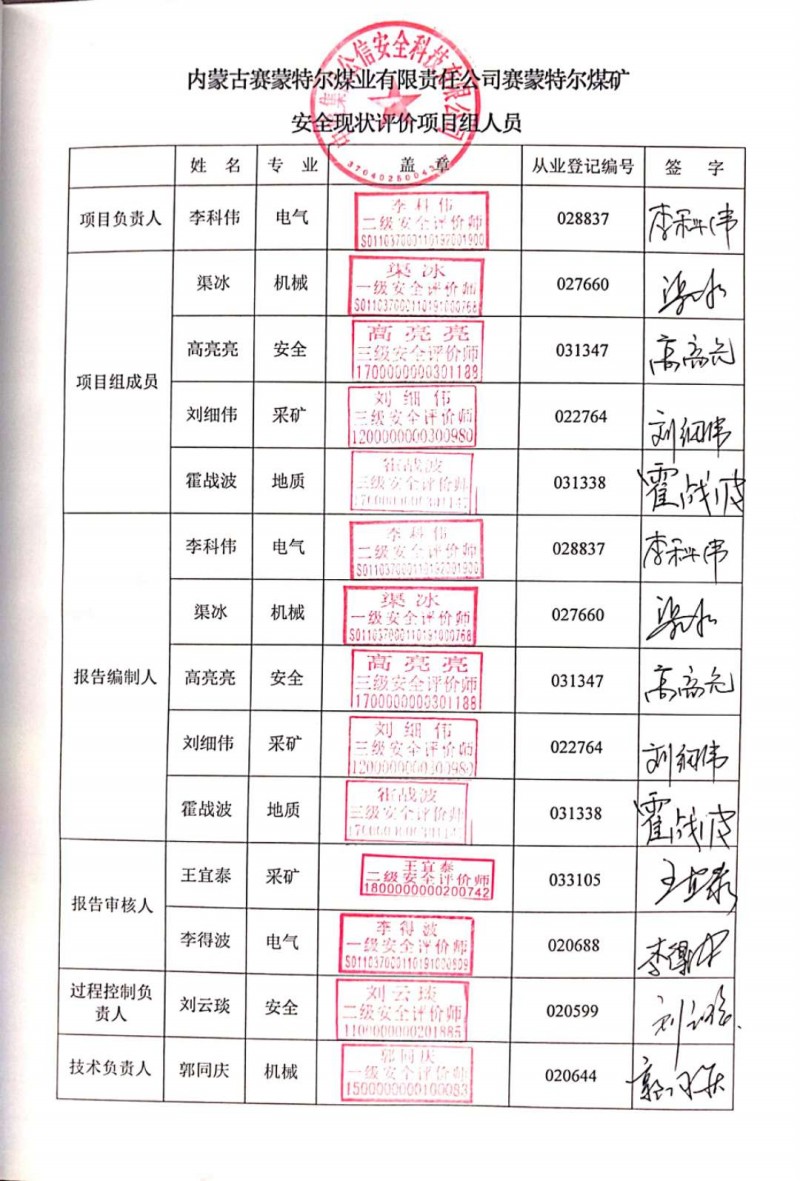 内蒙古赛蒙特尔煤业有限责任公司赛蒙特尔煤矿
安全现状评价项目组人员
姓 名 专 业 盖 章 从业登记编号 签 字
项目负责人 李科伟 电气 李科伟 二级安全评价师 S011037000110192001900 028837 李科伟
项目组成员
渠冰 机械 渠冰 一级安全评价师 S011037000110191000768 027660 渠冰
高亮亮 安全 高亮亮 三级安全评价师 1700000000301188 031347 高亮亮
刘细伟 采矿 刘细伟 三级安全评价师 1200000000300980 022764 刘细伟
霍战波 地质 霍战波 三级安全评价师 031338 霍战波
报告编制人
李科伟 电气 李科伟 二级安全评价师 S011037000110192001900 028837 李科伟
渠冰 机械 渠冰 一级安全评价师 S011037000110191000768 027660 渠冰
高亮亮 安全 高亮亮 三级安全评价师 1700000000301188 031347 高亮亮
刘细伟 采矿 刘细伟 三级安全评价师 1200000000300980 022764 刘细伟
霍战波 地质 霍战波 三级安全评价师 031338 霍战波
报告审核人
王宜泰 采矿 王宜泰 二级安全评价师 1800000000200742 033105 王宜泰
李得波 电气 李得波 一级安全评价师 S011037000110191000809 020688 李得波
过程控制负
责人
刘云琰 安全 刘云琰 二级安全评价师 1100000000201885 020599 刘云琰
技术负责人 郭同庆 机械 郭同庆 一级安全评价师 1500000000100083 020644 郭同庆